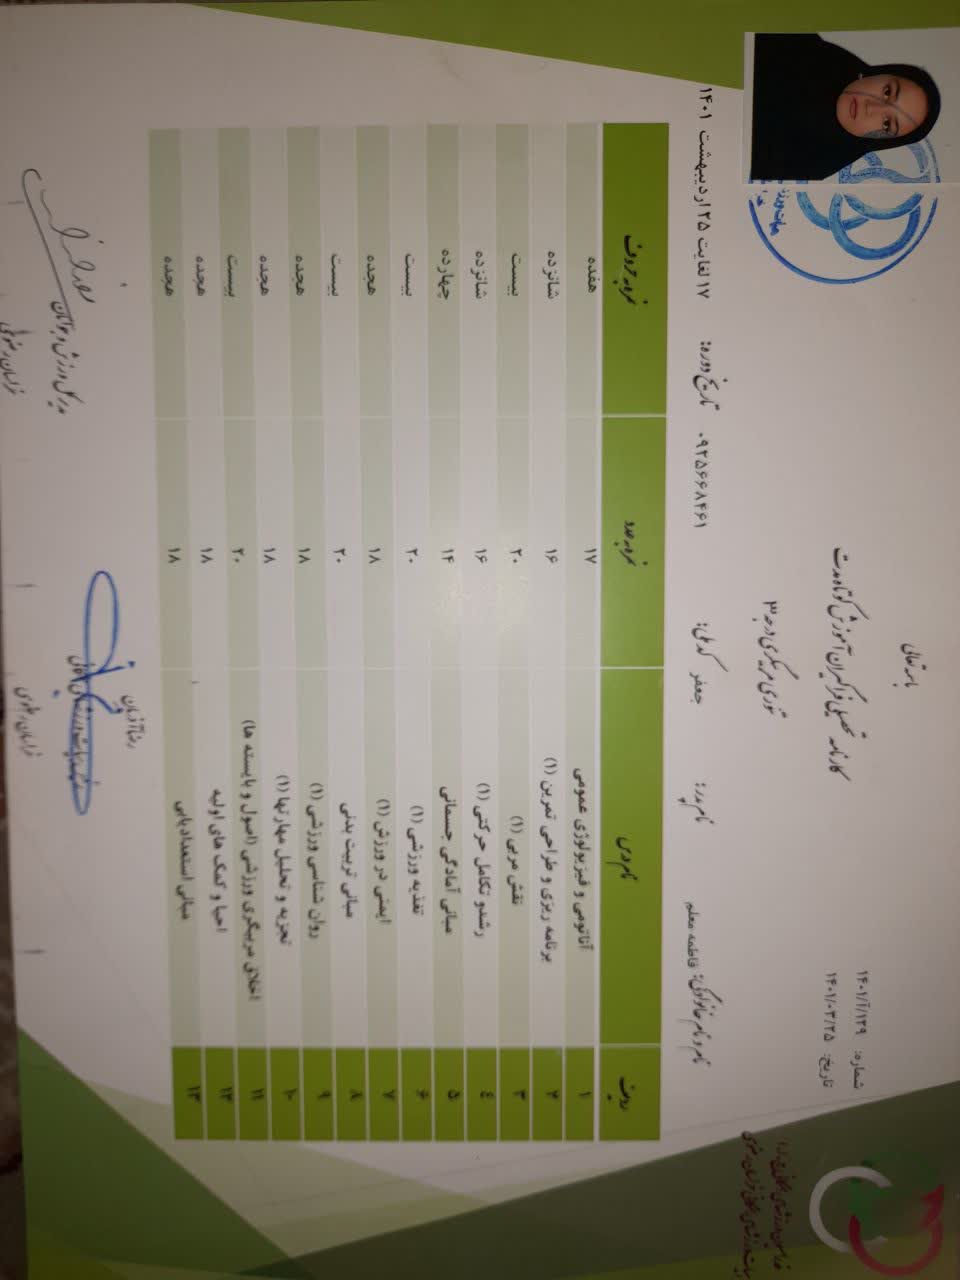 باسمه تعالی
کارنامه تحصیلی فراگیران آموزش کوتاه مدت
تئوری مربیگری درجه ۳
شماره: ۱۴۰۱/آ/۱۲۹
تاریخ: ۱۴۰۱/۰۳/۲۵
نام و نام خانوادگی: فاطمه معلم نام پدر: جعفر کد ملی: ۰۹۲۵۶۶۸۴۶۱ تاریخ دوره: ۱۷ لغایت ۲۵ اردیبهشت ۱۴۰۱
ردیف نام درس نمره به عدد نمره به حروف
۱ آناتومی و فیزیولوژی عمومی ۱۷ هفده
۲ برنامه ریزی و طراحی تمرین (۱) ۱۶ شانزده
۳ نقش مربی (۱) ۲۰ بیست
۴ رشدو تکامل حرکتی (۱) ۱۶ شانزده
۵ مبانی آمادگی جسمانی ۱۴ چهارده
۶ تغذیه ورزشی (۱) ۲۰ بیست
۷ ایمنی در ورزش (۱) ۱۸ هجده
۸ مبانی تربیت بدنی ۲۰ بیست
۹ روان شناسی ورزشی (۱) ۱۸ هجده
۱۰ تجزیه و تحلیل مهارتها (۱) ۱۸ هجده
۱۱ اخلاق مربیگری ورزشی (اصول و بایسته ها) ۲۰ بیست
۱۲ احیا و کمک های اولیه ۱۸ هجده
۱۳ مبانی استعدادیابی ۱۸ هجده
رضا آذریان
خراسان رضوی
مدیرکل ورزش و جوانان
خراسان رضوی